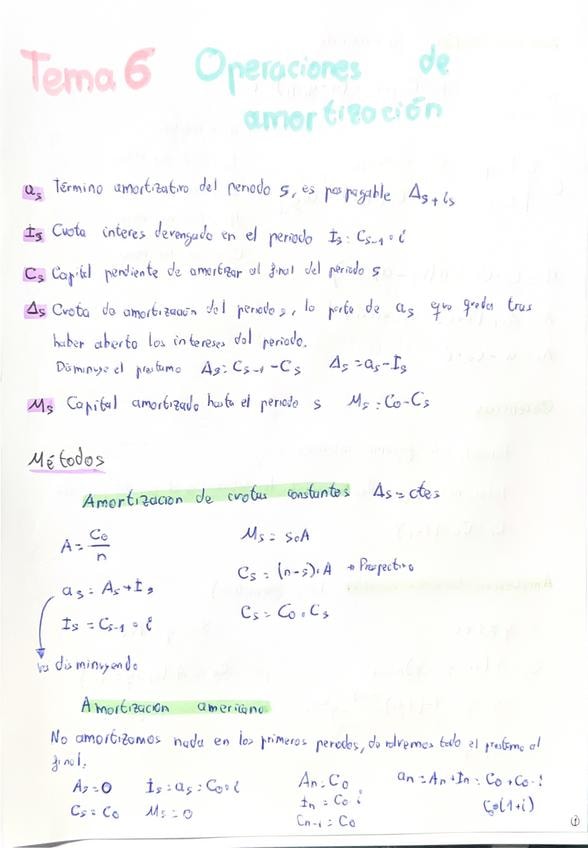 Tema 6 Operaciones de
amortización
as Término amortizativo del periodo s, es pospagable As + is
Is Cuota interes devengado en el periodo Is = Cs-1 · i
Cs Capital pendiente de amortizar al final del periodo s
As Cuota de amortización del periodo s, la parte de as que queda tras
haber abierto los intereses del periodo.
Disminuye el prestamo As = Cs-1 - Cs As = as - Is
Ms Capital amortizado hasta el periodo s Ms = Co - Cs
Métodos
Amortizacion de cuotas constantes As = ctes
A = Co/n Ms = s·A
as = As + Is Cs = (n-s)·A → Prospectivo
Is = Cs-1 · i Cs = Co · Cs
va disminuyendo
Amortizacion americano
No amortizamos nada en los primeros periodos, devolvemos todo el prestamo al
final.
As = 0 Is = as = Co·i An = Co an = An + In = Co + Co·i
Cs = Co Ms = 0 In = Co·i Co(1+i)
Cn-1 = Co
①